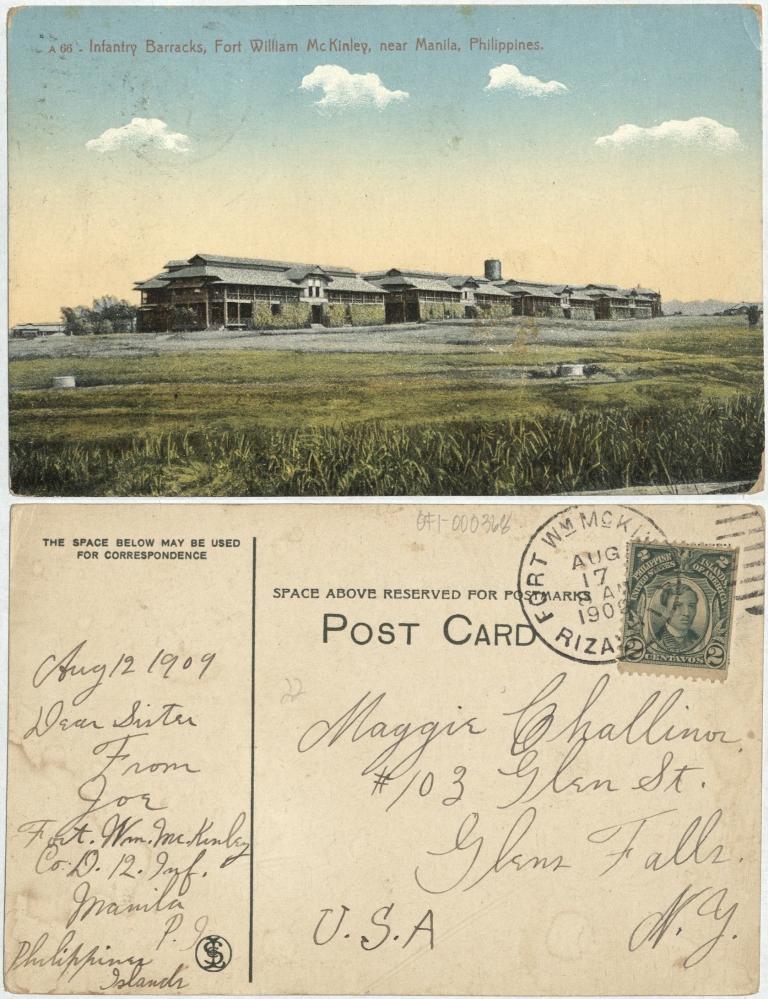 A 66 - Infantry Barracks, Fort William McKinley, near Manila, Philippines.
GF1-000368
THE SPACE BELOW MAY BE USED
FOR CORRESPONDENCE
SPACE ABOVE RESERVED FOR POSTMARKS
POST CARD
FORT WM McKIN
AUG
17
8 AM
1909
RIZA
2 2
PHILIPPINE ISLANDS
UNITED STATES OF AMERICA
2 CENTAVOS 2
22
Aug 12 1909
Dear Sister
From
Joe
Fort. Wm. McKinley
Co. D. 12. Inf.
Manila
P. I.
Philippines
Islands
Maggie Challinor.
#103 Glen St.
Glens Falls.
U.S.A N.Y.